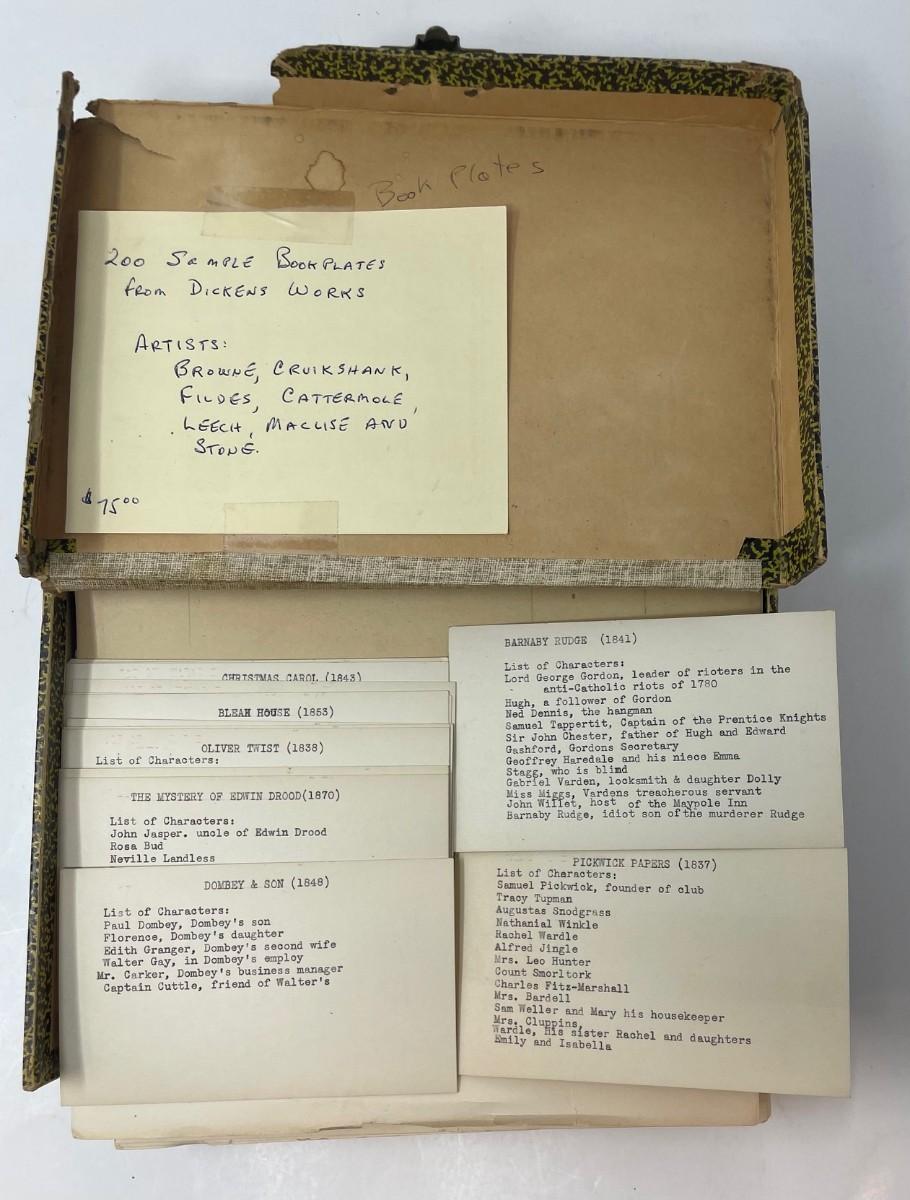 Book Plates
200 SAMPLE BOOKPLATES
from DICKENS WORKS
ARTISTS:
BROWNE, CRUIKSHANK,
FILDES, CATTERMOLE,
LEECH, MACLISE AND
STONE.
$75.00
CHRISTMAS CAROL (1843)
BLEAK HOUSE (1853)
OLIVER TWIST (1838)
List of Characters:
THE MYSTERY OF EDWIN DROOD(1870)
List of Characters:
John Jasper. uncle of Edwin Drood
Rosa Bud
Neville Landless
DOMBEY & SON (1848)
List of Characters:
Paul Dombey, Dombey's son
Florence, Dombey's daughter
Edith Granger, Dombey's second wife
Walter Gay, in Dombey's employ
Mr. Carker, Dombey's business manager
Captain Cuttle, friend of Walter's
BARNABY RUDGE (1841)
List of Characters:
Lord George Gordon, leader of rioters in the
anti-Catholic riots of 1780
Hugh, a follower of Gordon
Ned Dennis, the hangman
Samuel Tappertit, Captain of the Prentice Knights
Sir John Chester, father of Hugh and Edward
Gashford, Gordons Secretary
Geoffrey Haredale and his niece Emma
Stagg, who is blind
Gabriel Varden, locksmith & daughter Dolly
Miss Miggs, Vardens treacherous servant
John Willet, host of the Maypole Inn
Barnaby Rudge, idiot son of the murderer Rudge
PICKWICK PAPERS (1837)
List of Characters:
Samuel Pickwick, founder of club
Tracy Tupman
Augustas Snodgrass
Nathanial Winkle
Rachel Wardle
Alfred Jingle
Mrs. Leo Hunter
Count Smorltork
Charles Fitz-Marshall
Mrs. Bardell
Sam Weller and Mary his housekeeper
Mrs. Cluppins,
Wardle, His sister Rachel and daughters
Emily and Isabella